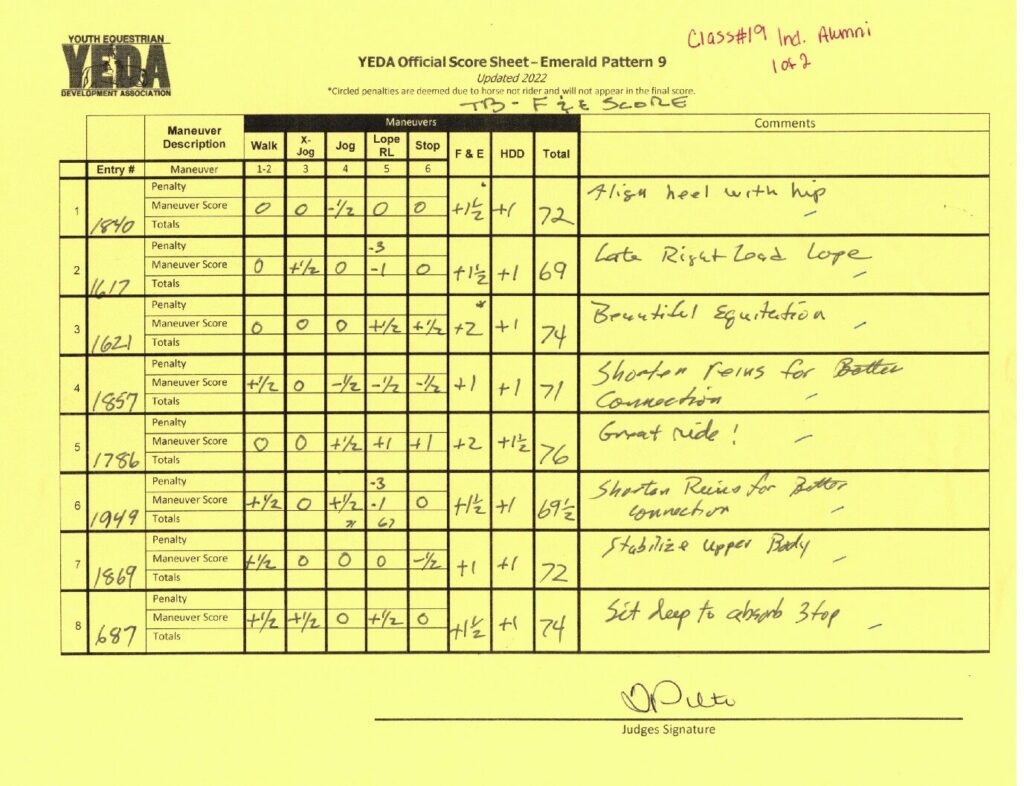 YOUTH EQUESTRIAN
YEDA
DEVELOPMENT ASSOCIATION
Class#19 Ind. Alumni
1 of 2
YEDA Official Score Sheet – Emerald Pattern 9
Updated 2022
*Circled penalties are deemed due to horse not rider and will not appear in the final score.
TB - F & E SCORE
Maneuver Description Maneuvers Comments
Walk X-Jog Jog Lope RL Stop F & E HDD Total
Entry # Maneuver 1-2 3 4 5 6
Penalty
1 1840 Maneuver Score 0 0 -1/2 0 0 +1 1/2 +1 72 Align heel with hip
Totals
Penalty -3
2 1617 Maneuver Score 0 +1/2 0 -1 0 +1 1/2 +1 69 Late Right Lead Lope
Totals
Penalty *
3 1621 Maneuver Score 0 0 0 +1/2 +1/2 +2 +1 74 Beautiful Equitation
Totals
Penalty
4 1857 Maneuver Score +1/2 0 -1/2 -1/2 -1/2 +1 +1 71 Shorten reins for Better
Connection
Totals
Penalty
5 1786 Maneuver Score 0 0 +1/2 +1 +1 +2 +1 1/2 76 Great ride !
Totals
Penalty -3
6 1949 Maneuver Score +1/2 0 +1/2 -1 0 +1 1/2 +1 69 1/2 Shorten Reins for Better
connection
Totals 71 67
Penalty
7 1869 Maneuver Score +1/2 0 0 0 -1/2 +1 +1 72 Stabilize upper Body
Totals
Penalty
8 687 Maneuver Score +1/2 +1/2 0 +1/2 0 +1 1/2 +1 74 Sit deep to absorb Stop
Totals
Judges Signature